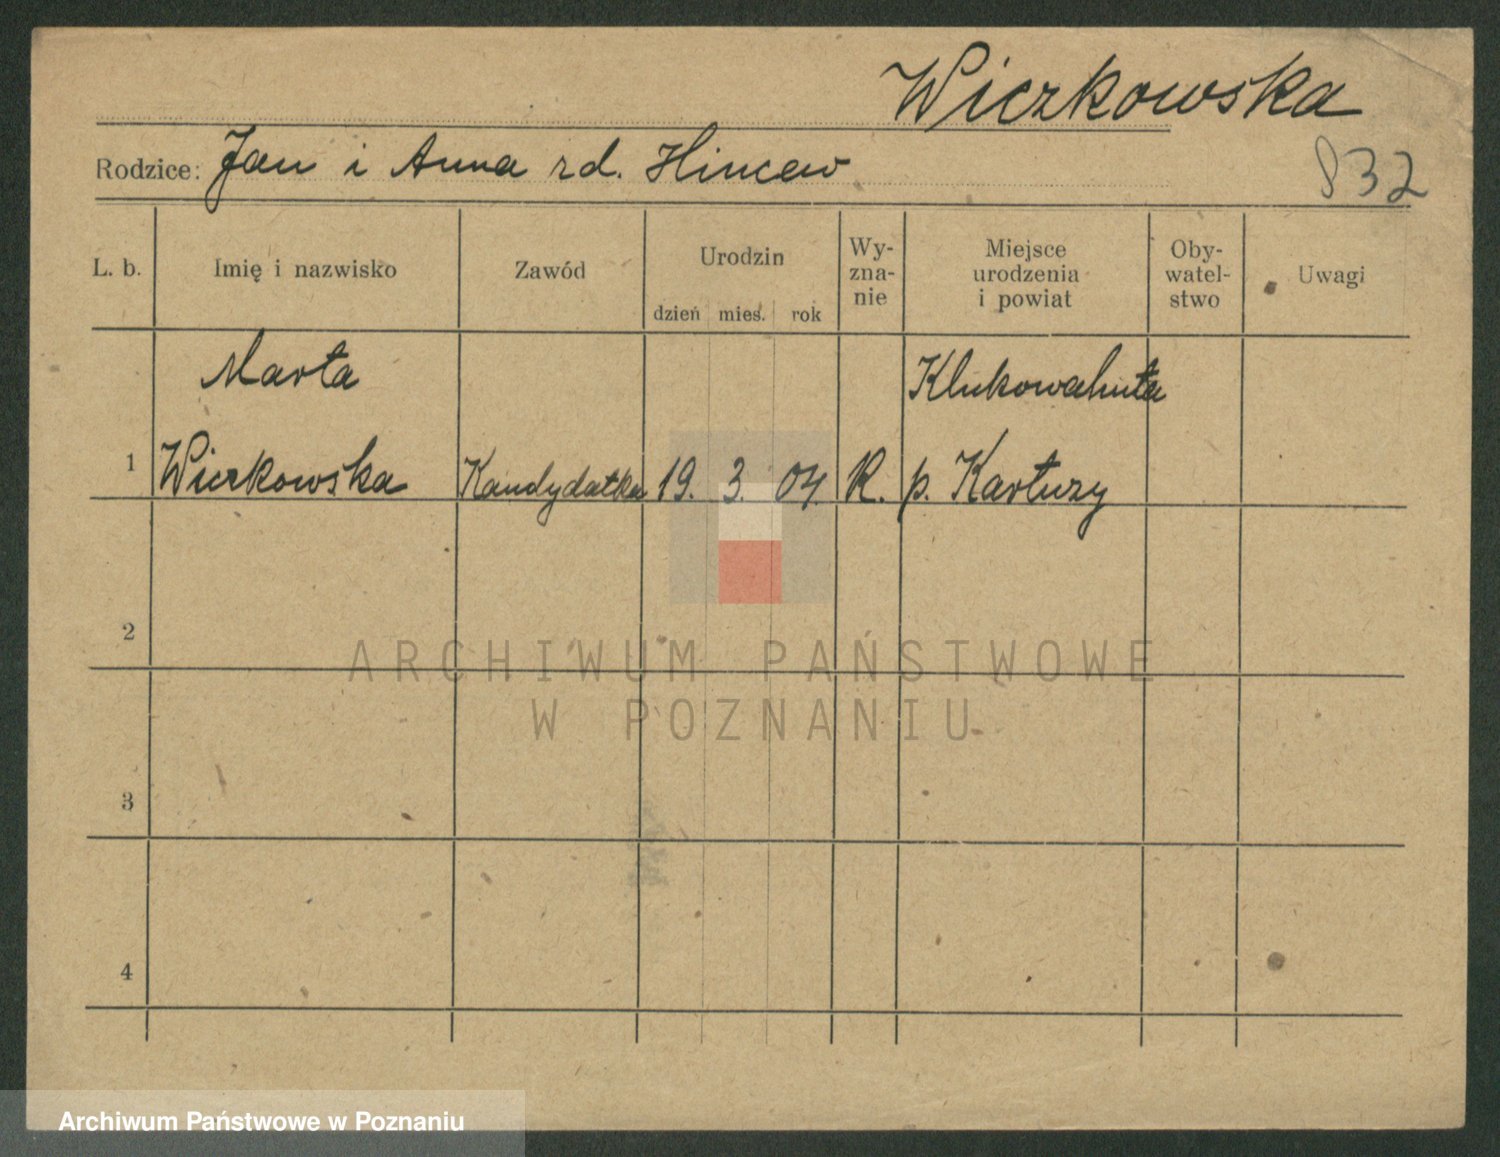 Wiczkowska
Rodzice: Jan i Anna rd. Hincew
832
L. b. Imię i nazwisko Zawód Urodzin dzień mies. rok Wy-zna-nie Miejsce urodzenia i powiat Oby-watel-stwo Uwagi
Marta Klukowahuta
1 Wiczkowska Kandydatka 19. 3. 04. R. p. Kartuzy
2
3
4
ARCHIWUM PAŃSTWOWE
W POZNANIU
Archiwum Państwowe w Poznaniu